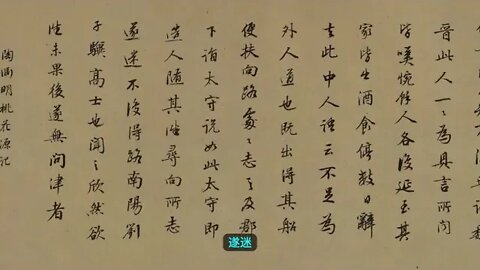 晉此人一一為具言所聞
皆嘆惋餘人各復延至其
家皆出酒食停數日辭
去此中人語云不足為
外人道也既出得其船
便扶向路處〻志之及郡
下詣太守說如此太守即
遣人隨其往尋向所志
遂迷不復得路南陽劉
子驥高士也聞之欣然欲
往未果後遂無問津者
陶淵明桃花源記
遂迷